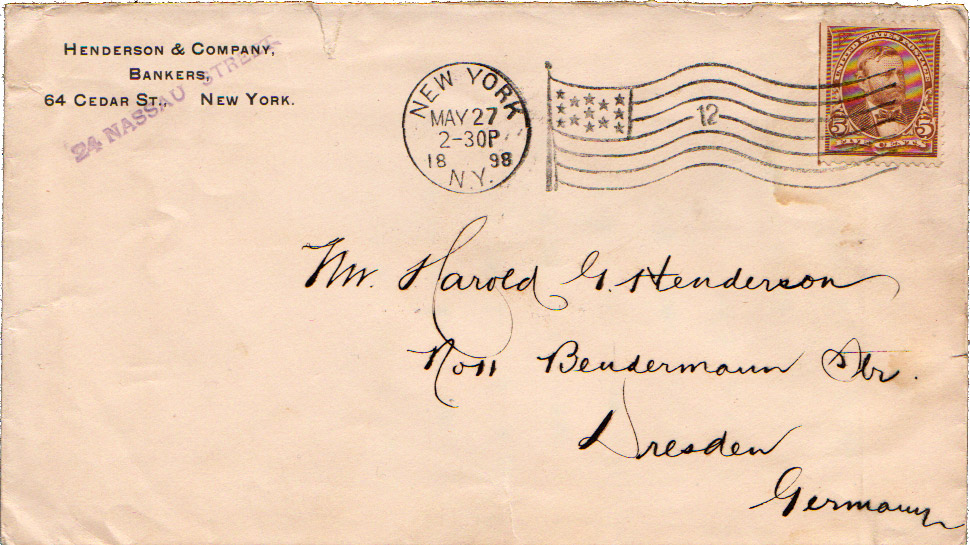 HENDERSON & COMPANY,
BANKERS,
64 CEDAR ST., NEW YORK.
24 NASSAU STREET
NEW YORK
MAY 27
2-30P
18 98
N.Y.
12
UNITED STATES POSTAGE
5 5
Mr. Harold G. Henderson
No 11 Bendermann Str.
Dresden
Germany